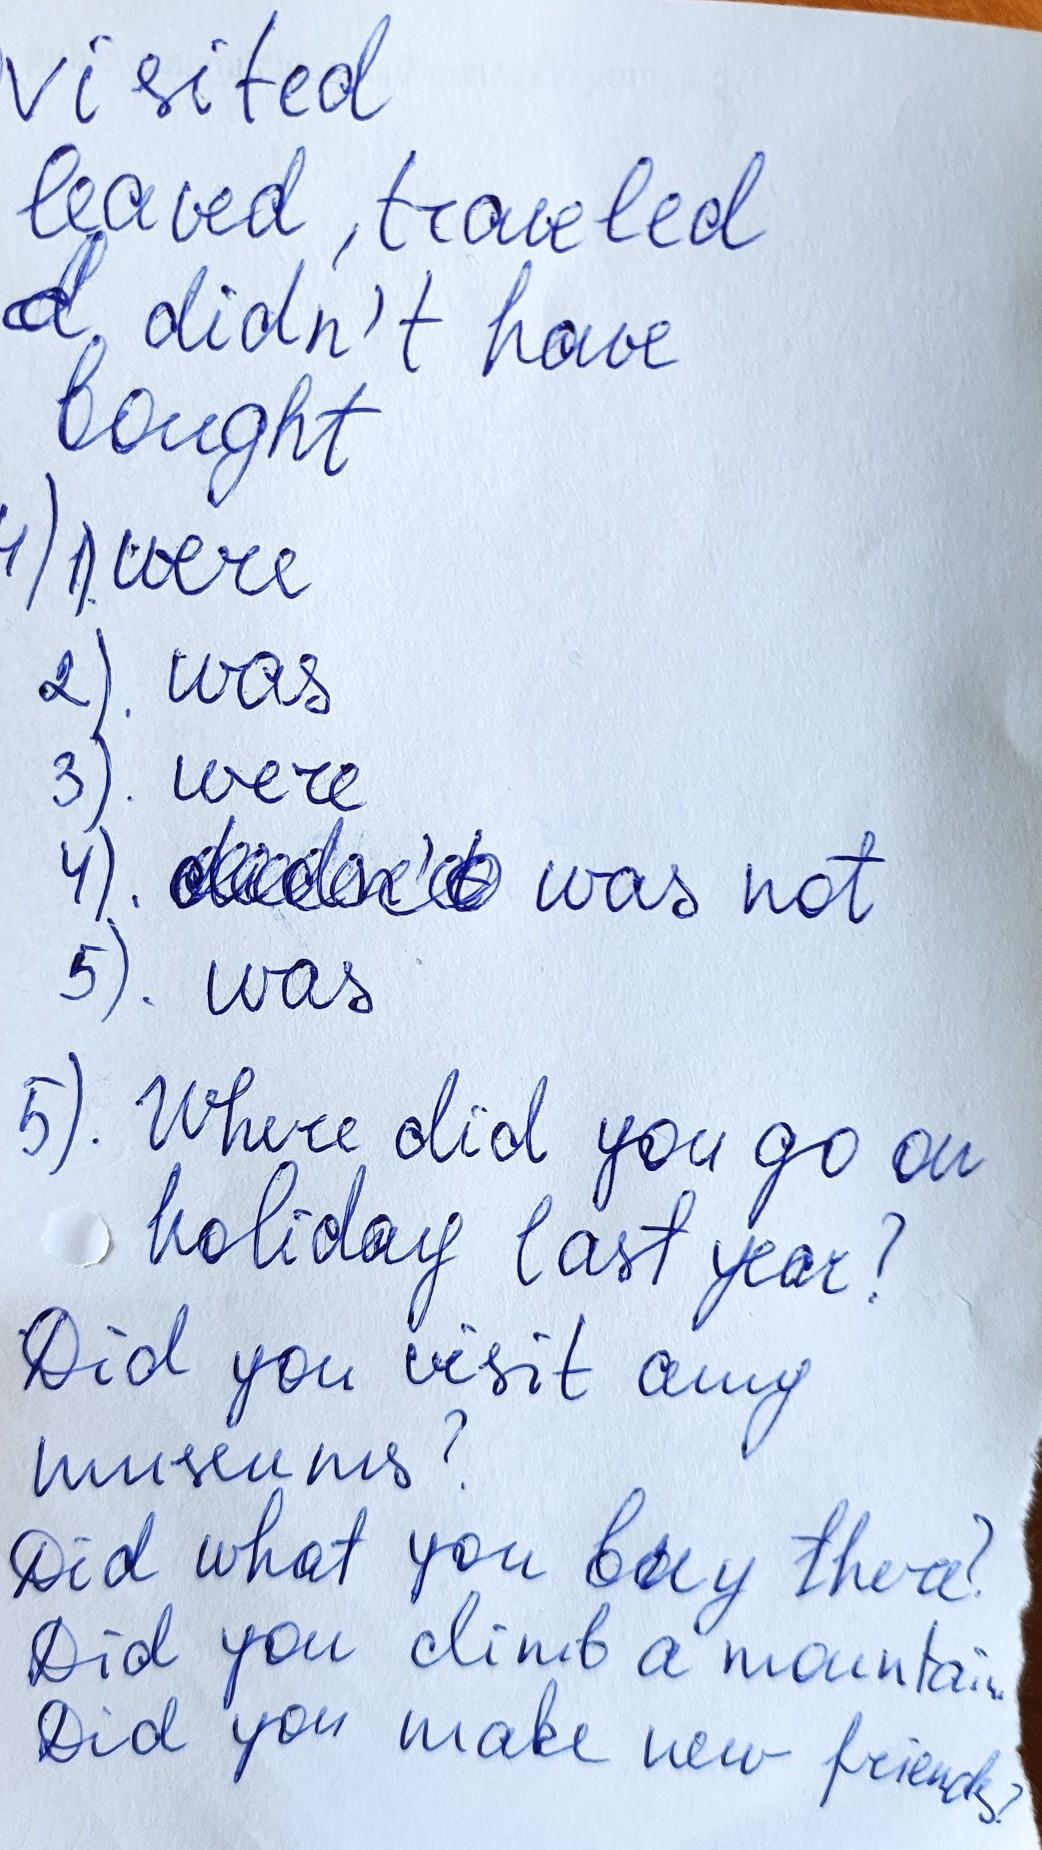 visited
leaved, traveled
d. didn't have
bought
4) 1). were
2). was
3). were
4). was not
5). was
5). Where did you go on
holiday last year?
Did you visit any
museums?
Did what you buy there?
Did you climb a mountain
Did you make new friends?